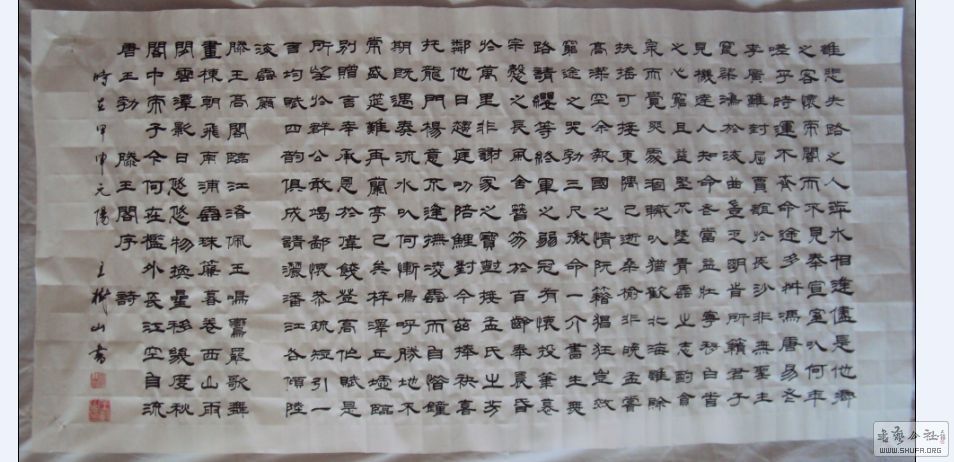 誰悲失路之人萍水相逢盡是他鄉
之客懷帝閽而不見奉宣室以何年
嗟乎時運不齊命途多舛馮唐易老
李廣難封屈賈誼於長沙非無聖主
竄梁鴻於海曲豈乏明時所賴君子
見機達人知命老當益壯寧移白首
之心窮且益堅不墜青雲之志酌貪
泉而覺爽處涸轍以猶歡北海雖賒
扶搖可接東隅已逝桑榆非晚孟嘗
高潔空余報國之情阮籍猖狂豈效
窮途之哭勃三尺微命一介書生無
路請纓等終軍之弱冠有懷投筆慕
宗愨之長風舍簪笏於百齡奉晨昏
於萬里非謝家之寶樹接孟氏之芳
鄰他日趨庭叨陪鯉對今茲捧袂喜
托龍門楊意不逢撫凌雲而自惜鐘
期既遇奏流水以何慚嗚呼勝地不
常盛筵難再蘭亭已矣梓澤丘墟臨
別贈言幸承恩於偉餞登高作賦是
所望於群公敢竭鄙懷恭疏短引一
言均賦四韻俱成請灑潘江各傾陸
海雲爾
滕王高閣臨江渚佩玉鳴鸞罷歌舞
畫棟朝飛南浦雲珠簾暮卷西山雨
閑雲潭影日悠悠物換星移幾度秋
閣中帝子今何在檻外長江空自流
唐王勃 滕王閣序 詩
時在甲申元陽 王樹山書
WWW.SHUFA.ORG